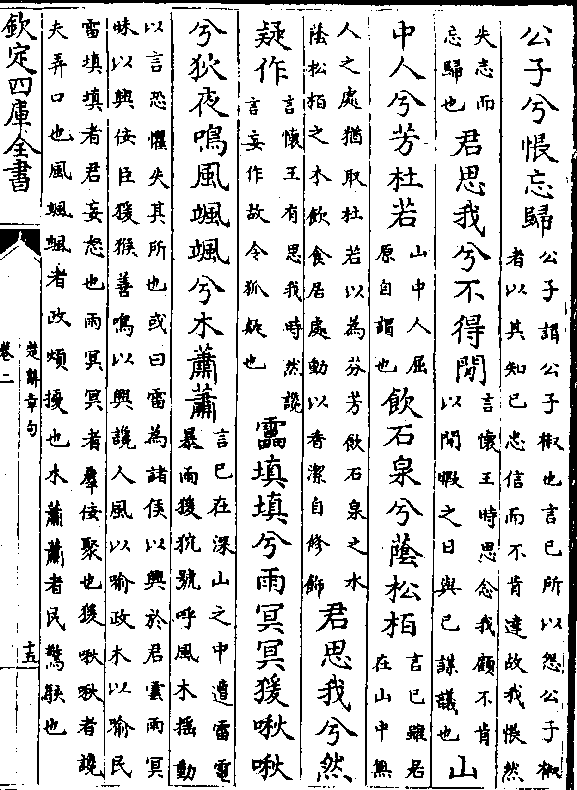 公子兮悵忘歸公子謂公子椒也言已所以怨公子椒者以其知已忠信而不肯達故我悵然
失志而忘歸也君思我兮不得閒言懷王時思念我顧不肯以閒暇之日與已謀議也山
中人兮芳杜若山中人屈原自謂也飲石泉兮蔭松栢言已雖居在山中無
人之處猶取杜若以為芬芳飲石泉之水蔭松栢之木飲食居處動以香潔自修飾君思我兮然
疑作言懷王有思我時然讒言妄作故令狐疑也靁填填兮雨冥冥猨啾啾
兮狄夜鳴風颯颯兮木蕭蕭言已在深山之中遭雷電暴雨猨狖號呼風木揺動
以言恐懼失其所也或曰雷為諸侯以興於君雲雨冥昧以興佞臣猨猴善鳴以興讒人風以喻政木以喻民
雷填填者君妄怒也雨冥冥者羣佞聚也猨啾啾者讒夫弄口也風颯颯者政煩擾也木蕭蕭者民驚駭也
欽定四庫全書
楚辭章句
卷二
十五